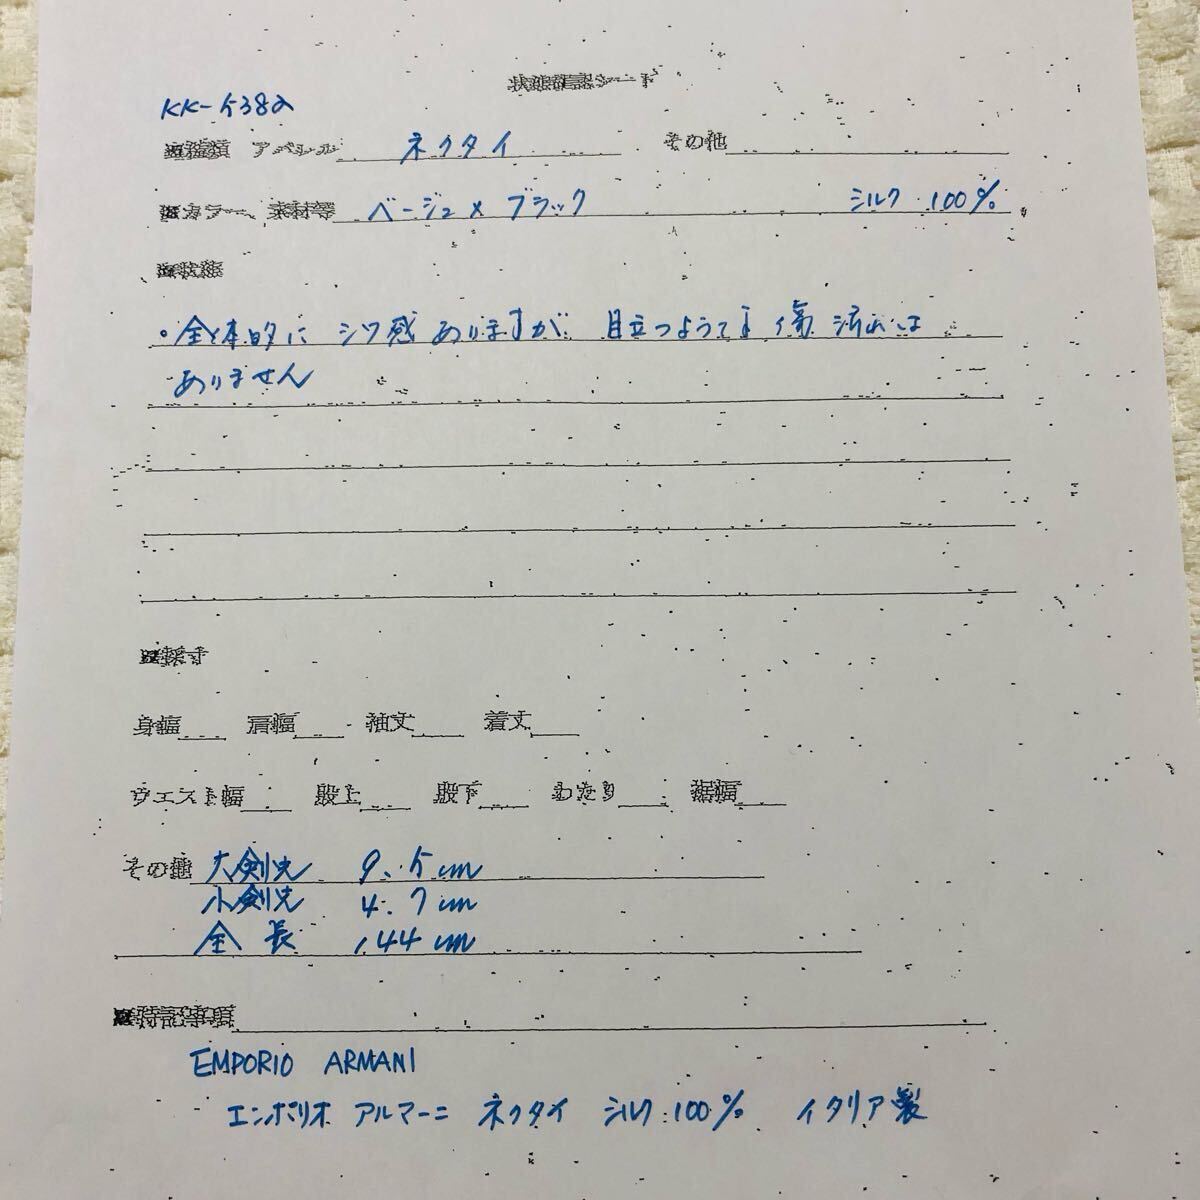 状態確認シート
KK-5382
■種類 アパレル ネクタイ その他
■カラー、素材等 ベージュ×ブラック シルク 100%
■状態
・全体的に シワ感 ありますが 目立つようてます 傷 汚れは
ありません
■採寸
身幅 肩幅 袖丈 着丈
ウエスト幅 股上 股下 わたり 裾幅
その他 大剣先 9.5cm
小剣先 4.7cm
全長 144cm
■特記事項
EMPORIO ARMANI
エンポリオ アルマーニ ネクタイ シルク 100% イタリア製